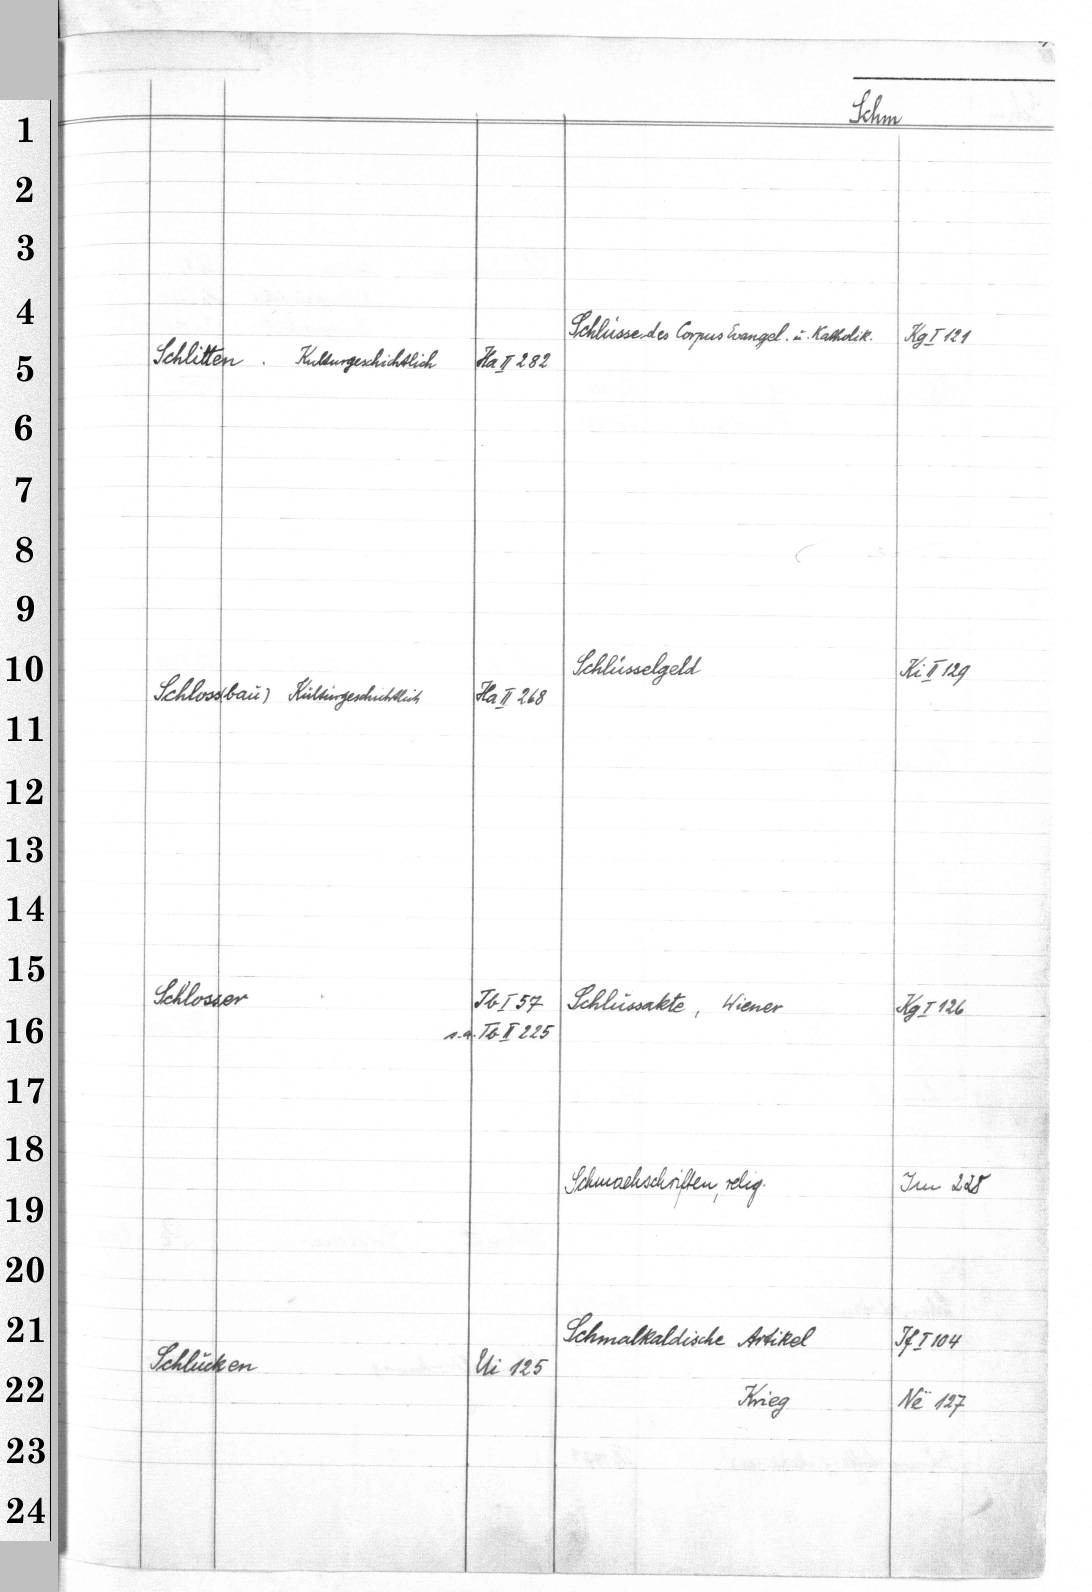 Schm
1
2
3
4
5
6
7
8
9
10
11
12
13
14
15
16
17
18
19
20
21
22
23
24
Schlitten . Kulturgeschichtlich Ha II 282
Schloss(bau) Kulturgeschichtlich Ha II 268
Schlosser Tb I 57
s.a. Tb II 225
Schlucken Ui 125
Schlüsse des Corpus Evangel. u. Katholik. Kg I 121
Schlüsselgeld Ki II 129
Schlussakte, Wiener Kg I 126
Schmachschriften, relig. 228
Schmalkaldische Artikel If I 104
Krieg 127